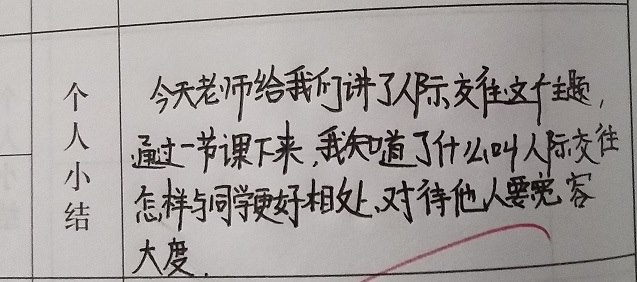 个人小结
今天老师给我们讲了人际交往这个主题,
通过一节课下来,我知道了什么叫人际交往
怎样与同学更好相处、对待他人要宽容
大度.